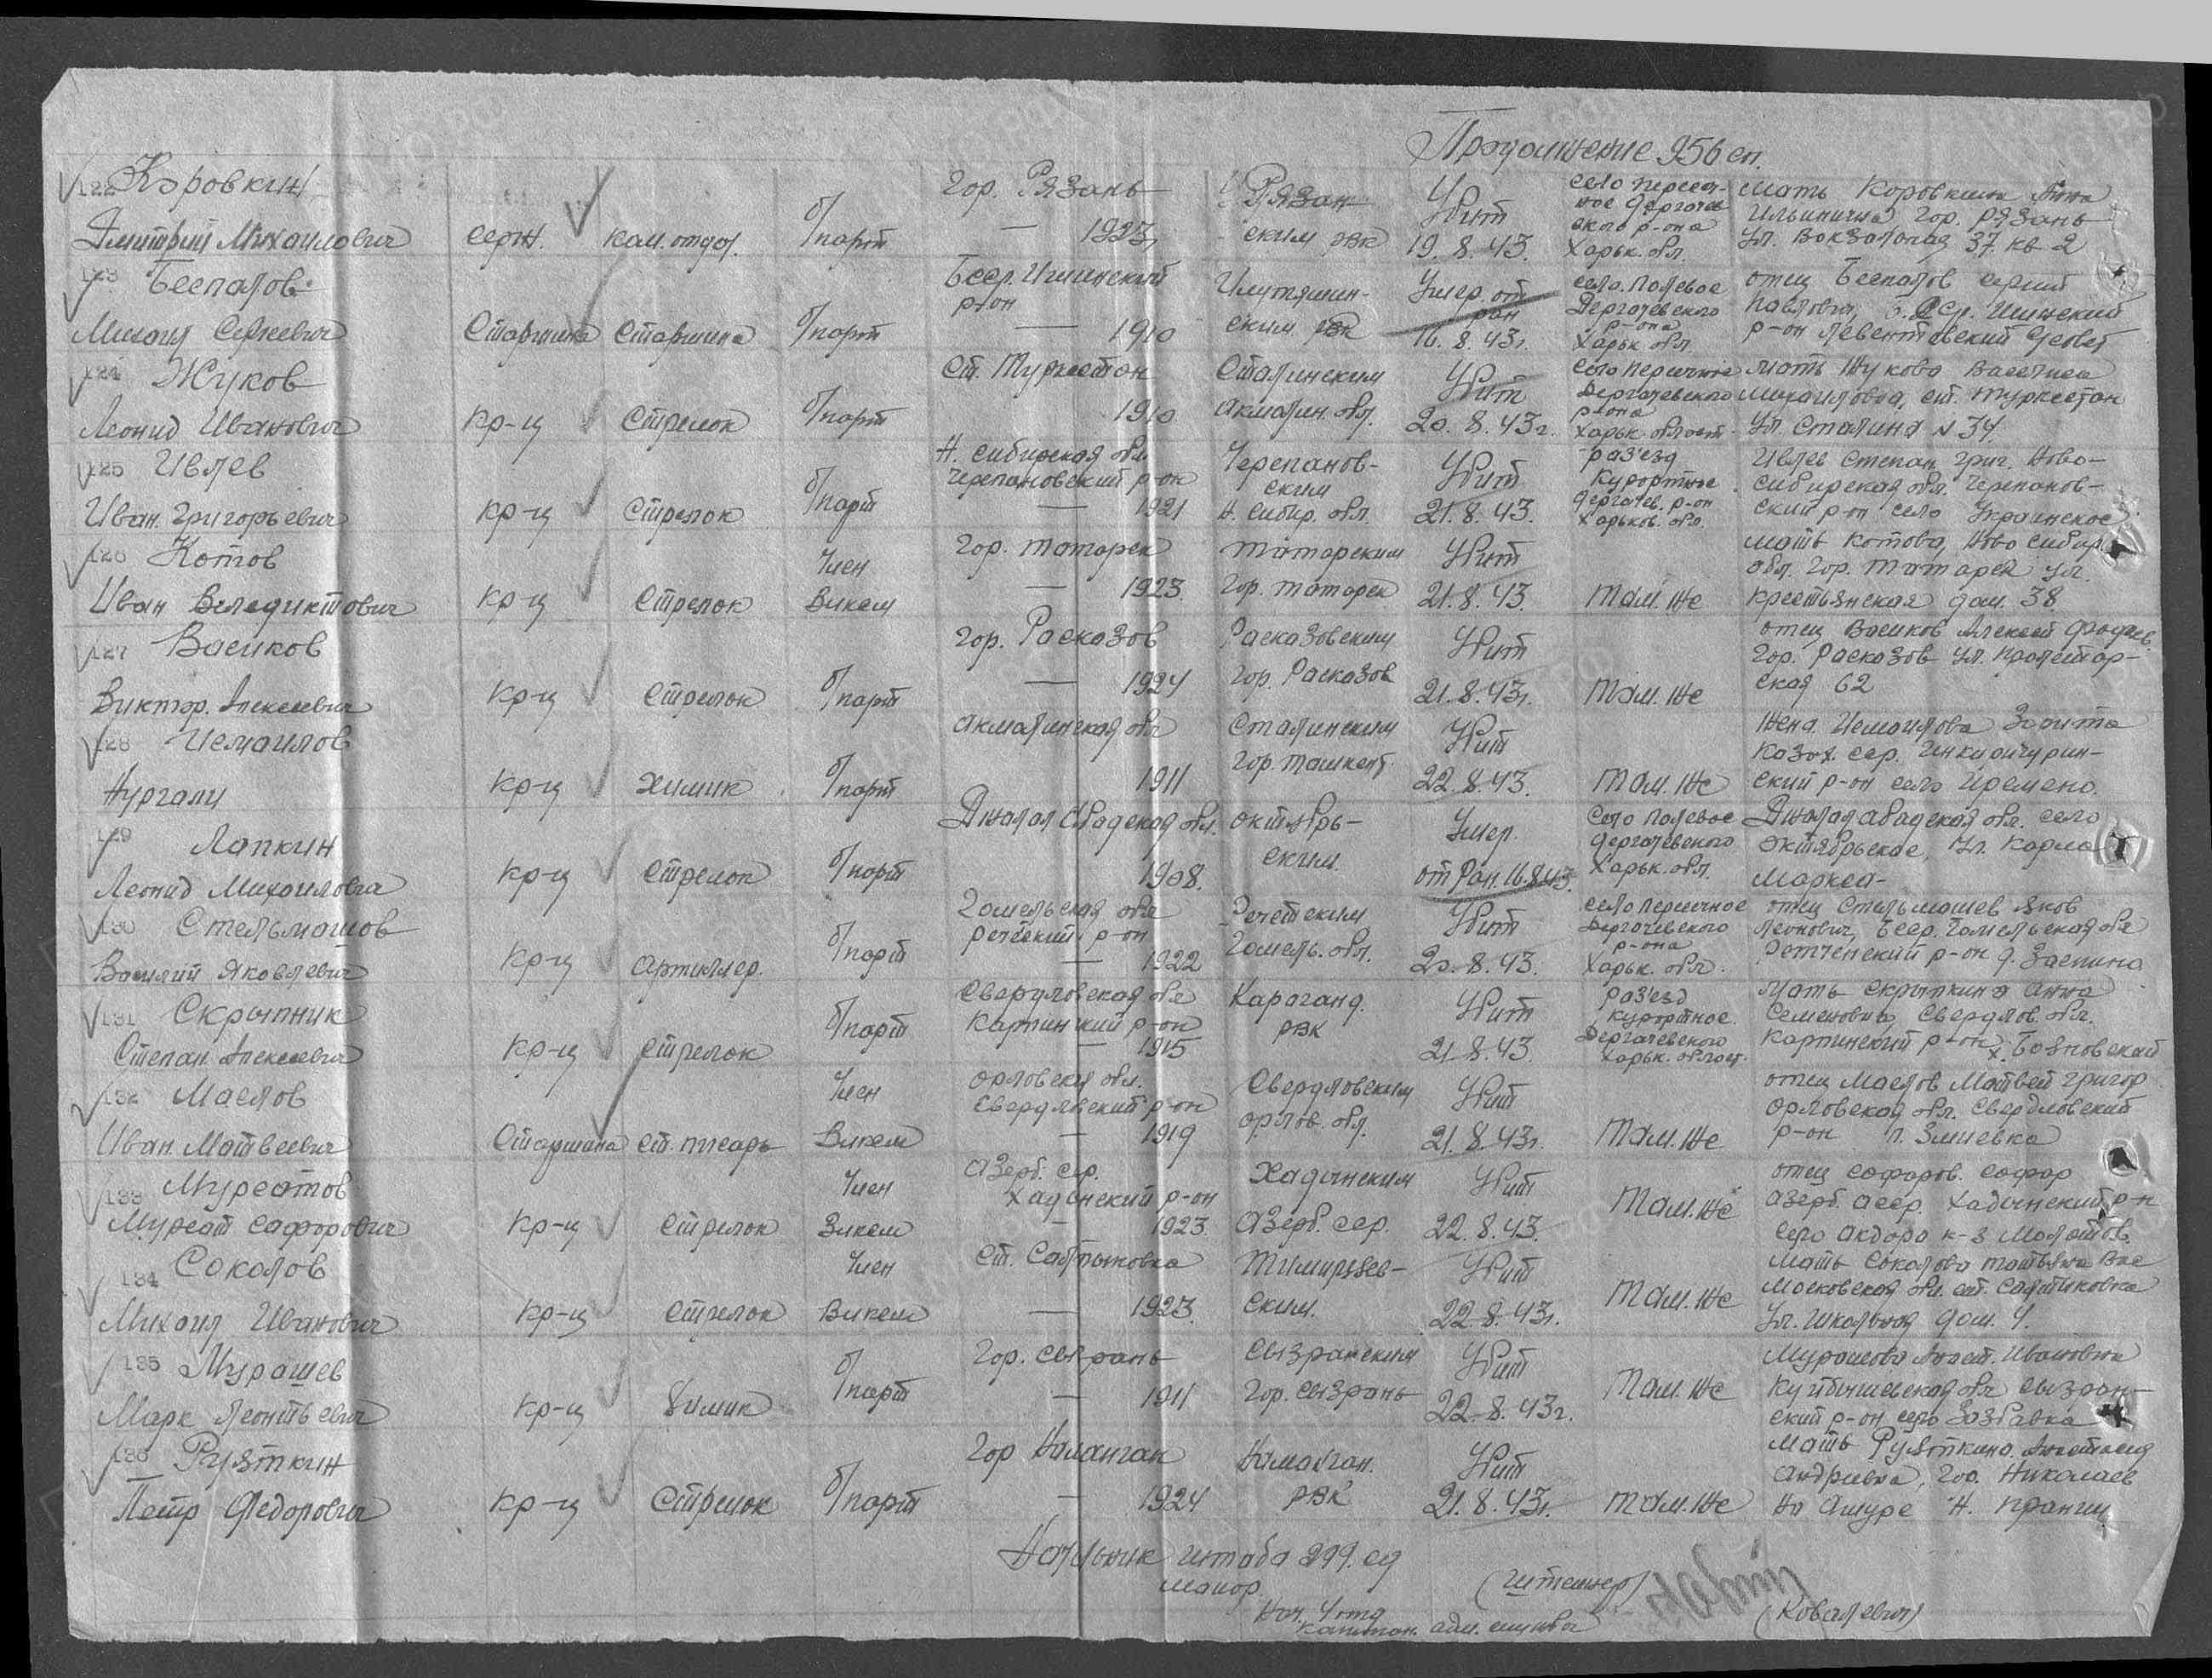 Продолжение 956 сп.
122 Коровкин
Дмитрий Михаилович
серж.
ком. отдел.
б/парт
гор. Рязань
— 1923
Рязан
ским РВК
Убит
19.8.43.
село Пересеч-
ное Дергачев
ского р-она
Харьк. обл.
мать Коровкина Анна
Ильинична гор. Рязань
ул. Вокзальная 37 кв 2
123 Беспалов
Михаил Сергеевич
Старшина
Старшина
б/парт
Бсср. Ишинский
р-он
— 1910
ским РВК
Умер. от
ран
16.8.43г.
село. Полевое
Дергачевского
р-она
Харьк обл.
отец Беспалов Сергей
Павлович,
р-он
124 Жуков
Леонид Иванович
кр-ц
Стрелок
б/парт
ст. Туркестан
1910
Сталинским
Акмолин. обл.
Убит
20.8.43г.
село Пересечное
Дергачевского
р-она
Харьк област
мать Жукова
Михаиловна, ст. Туркестан
ул. Сталина № 34.
125 Ивлев
Иван Григорьевич
кр-ц
Стрелок
б/парт
Н. Сибирская обл.
Черепановский р-он
— 1921
Черепанов-
ским
Н. Сибир. обл.
Убит
21.8.43.
раз'езд
Курортное
Дергачев. р-он
Харьков. обл.
Ивлев Степан Григ. Ново-
сибирская обл. Черепанов-
ский р-он село Украинское
126 Котов
Иван Веледиктович
кр-ц
Стрелок
Член
Влксм
гор. Татарск
— 1923
Татарским
гор. Татарск
Убит
21.8.43.
Там. же
мать Котова, Ново Сибир
обл. гор. Татарск ул.
крестьянская дом. 38
127 Васиков
Виктор. Алексеевич
кр-ц
Стрелок
б/парт
гор. Расказов
— 1924
Расказовским
гор. Расказов
Убит
21.8.43г.
Там. же
отец Васиков Алексей
гор. Расказов ул. Пролетар-
ская 62
128 Исмаилов
Нургали
кр-ц
химик
б/парт
Акмолинская обл
1911
Сталинским
гор. Ташкент
Убит
22.8.43.
Там. же
жена. Исмаилова
Казах. сср.
ский р-он село
129 Лапкин
Леонид Михаилович
кр-ц
Стрелок
б/парт
Джалал Абадская обл.
1908.
Октябрь-
ским.
Умер.
от Ран. 16.8.43.
Село Полевое
Дергачевского
Харьк. обл.
Джалал абадская обл. село
Октябрьское, ул. Карла
Маркса-
130 Стельмашов
Василий Яковлевич
кр-ц
Артиллер.
б/парт
Гомельская обл
р-он
— 1922
Гомель. обл.
Убит
20.8.43.
село Пересечное
Дергачевского
р-она
Харьк. обл.
отец Стельмашев Яков
Леонович, Бсср. Гомельская обл
р-он д. Заспино
131 Скрыпник
Степан Алексеевич
кр-ц
Стрелок
б/парт
Свердловская обл
Карпинский р-он
— 1915
Караганд.
РВК
Убит
21.8.43.
раз'езд
курортное.
Дергачевского
Харьк. област.
Мать Скрыпкина Анна
Семеновна Свердлов. обл.
Карпинский р-он
132 Маслов
Иван Матвеевич
Старшина
ст. писарь
Член
Влксм
Орловск обл.
Свердловский р-он
— 1919
Свердловским
Орлов. обл.
Убит
21.8.43г.
Там. же
отец Маслов Матвей Григор
Орловская обл. Свердловский
р-он п. Змиевка
133 Мурсатов
Мурсат Сафорович
кр-ц
Стрелок
Член
Влксм
Азерб. сср.
р-он
— 1923
Азерб. сср.
Убит
22.8.43.
Там. же
отец Софоров. Софор
Азерб. асср. р-н
село
134 Соколов
Михаил Иванович
кр-ц
Стрелок
Член
Влксм
ст. Салтыковка
— 1923
Тимирязев-
ским.
Убит
22.8.43г.
Там. же
мать Соколова Татьяна Вас
Московская обл. ст. Салтыковка
ул. Школьная дом. 4.
135 Мурашев
Марк Леонтьевич
кр-ц
химик
б/парт
гор. Сызрань
— 1911
Сызранским
гор. Сызрань
Убит
22.8.43г.
Там. же
Мурашова Анаст. Ивановна
Куйбышевская обл Сызран-
ский р-он село
136 Руяткин
Петр Федорович
кр-ц
Стрелок
б/парт
гор Наманган
— 1924
Наманган.
РВК
Убит
21.8.43г.
Там. же
мать Руяткина Анастасия
гор. Николаев
на Амуре
Начальник штаба 299. сд
майор.
(Штемпер)
Нач. 4 отд
капитан. адм. службы
(Ковалевич)